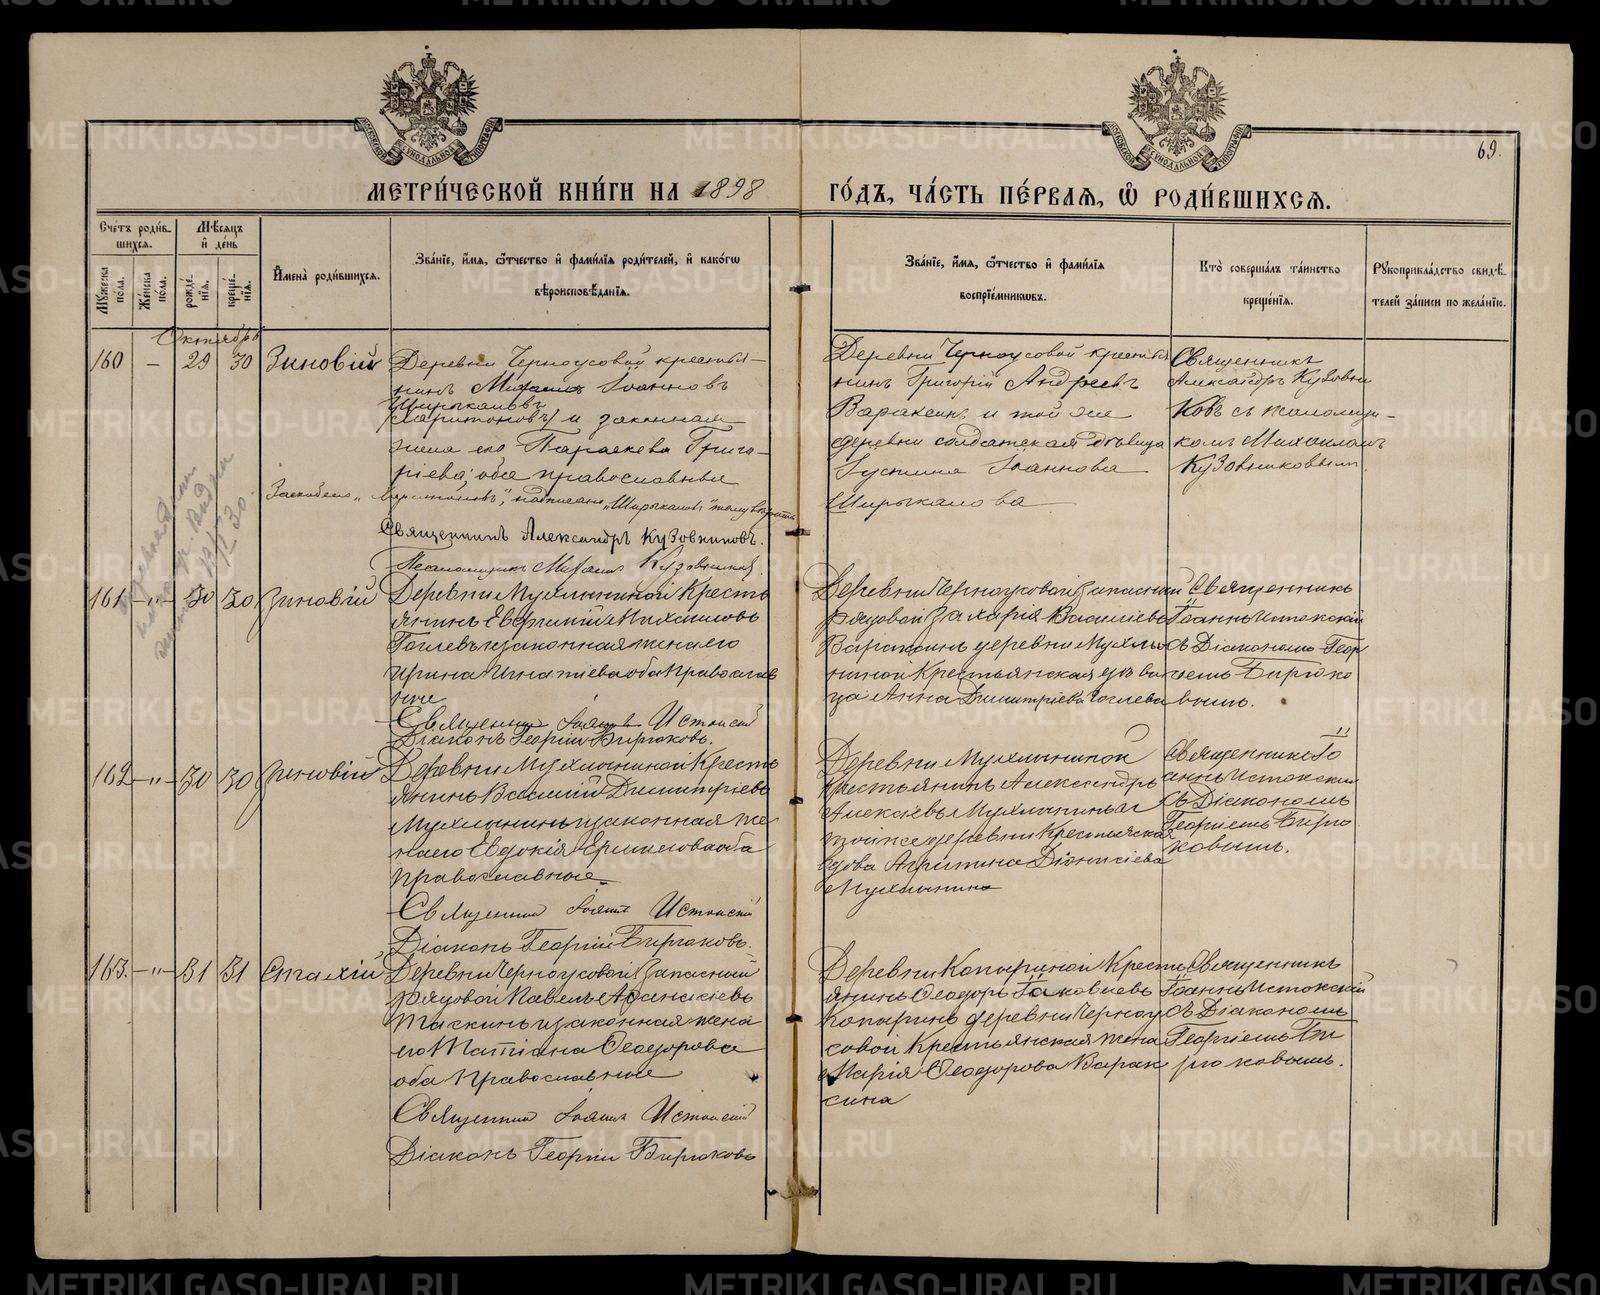 МЕТРИ́ЧЕСКОЙ КНИ́ГИ НА 1898 ГО́ДЪ, ЧА́СТЬ ПЕ́РВАЯ, Ѿ РОДИ́ВШИХСЯ.
69.
Счетъ роди́в-
шихся.
Мѣсяцъ
и де́нь
Мужеска по́ла.
Же́нска по́ла.
рожде́-
нїя.
креще́-
нїя.
Имена̀ роди́вшихся.
Зва́нїе, и́мя, ѻ҆́тчество и фами́лїя роди́телей, и како́гѡ
вѣроисповѣ́данїя.
Зва́нїе, и́мя, ѻ҆́тчество и фами́лїя
воспрїе́мникѡвъ.
Кто̀ соверша́лъ та́инство
креще́нїя.
Рукоприкла́дство свидѣ́-
телей за́писи по жела́нїю.
Октябрь
160 - 29 30 Зиновій
Деревни Черноусовой крестья-
нинъ Михаилъ Іоанновъ
Ширыкаловъ
(Харитоновъ) и законная
жена его Параскева Григо-
ріева; оба православные
надписано „Ширыкаловъ"
Священникъ Александръ Кузовниковъ.
Псаломщикъ Михаилъ Кузовниковъ
Деревни Черноусовой крестья
нинъ Григорій Андреевъ
Вараксинъ и той же
деревни солдатская дѣвица
Іустина Іоаннова
Ширыкалова
Священникъ
Александръ Кузовни
ковъ съ псаломщи-
комъ Михаиломъ
Кузовниковымъ.
161 - " - 30 30 Зиновій
Деревни Мухлыниной Кресть
янинъ Евфимій Михаиловъ
Гоглевъ и законная жена его
Ирина Игнатіева оба Православ
ные
Священникъ Іоаннъ Истокскій
Діаконъ Георгій Бирюковъ.
Деревни Черноусовой Запасный
рядовой Захарія Василіевъ
Вараксинъ деревни Мухлы
ниной Крестьянская дѣви
ца Анна Димитріева Гоглева
Священникъ
Іоаннъ Истокскій
съ Діакономъ Геор
гіемъ Бирюко
вымъ.
162 - " - 30 30 Зиновій
Деревни Мухлыниной Кресть
янинъ Василій Димитріевъ
Мухлынинъ и законная же
на его Евдокія Ермилова оба
Православные
Священникъ Іоаннъ Истокскій
Діаконъ Георгій Бирюковъ.
Деревни Мухлыниной
Крестьянинъ Александръ
Алексіевъ Мухлынинъ и
той же деревни Крестьянская
вдова Агрипина Діонисіева
Мухлынина
Священникъ Іо
аннъ Истокскій
съ Діакономъ
Георгіемъ Бирю
ковымъ.
163. - " - 31 31 Стахій
Деревни Черноусовой Запасный
рядовой Павелъ Аѳанасіевъ
Таскинъ и законная жена
его Татіана Ѳеодорова
оба Православные
Священникъ Іоаннъ Истокскій
Діаконъ Георгій Бирюковъ
Деревни Копыриной Кресть
янинъ Ѳеодоръ Іаковлевъ
Копыринъ деревни Черноу
совой Крестьянская жена
Марія Ѳеодорова Варак
сина
Священникъ
Іоаннъ Истокскій
съ Діакономъ
Георгіемъ Би
рюковымъ.
METRIKI.GASO-URAL.RU